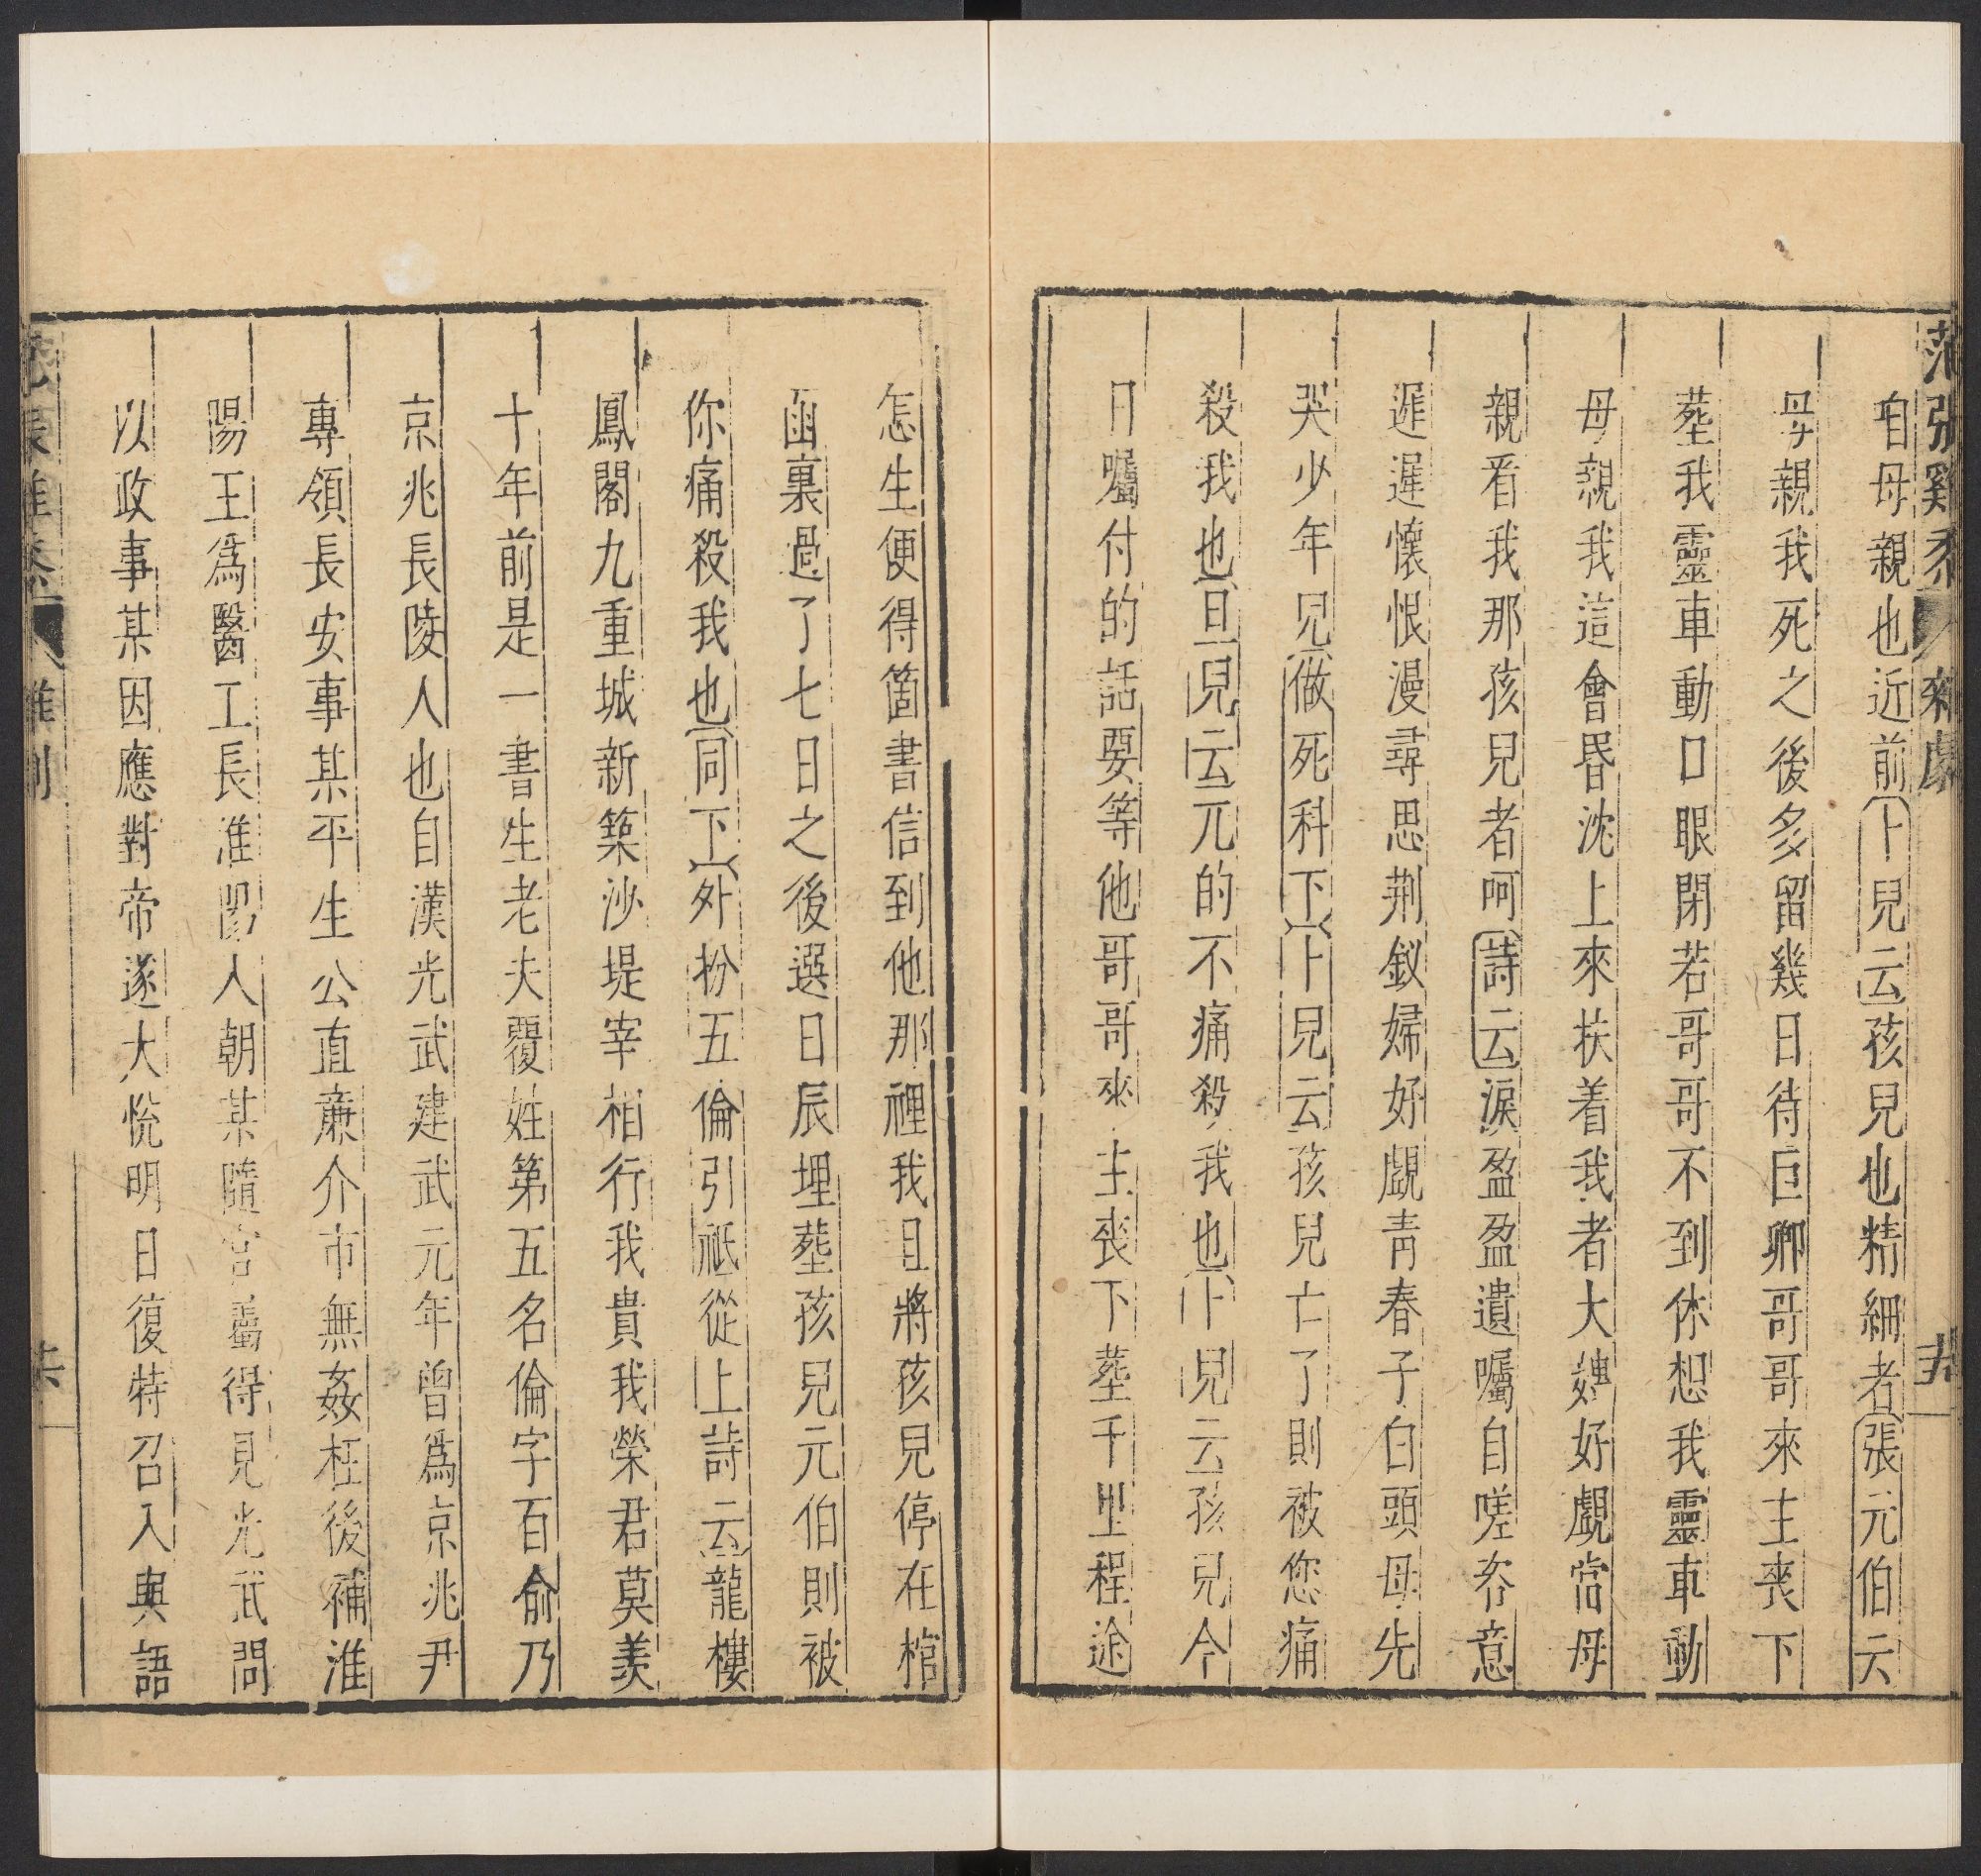 范張雞黍 雜劇 十五
自母親也近前卜兒云孩兒也精細者張元伯云
母親我死之後多留幾日待巨卿哥哥來主喪下
塟我靈車動口眼閉若哥哥不到休想我靈車動
母親我這會昏沈上來扶着我者大嫂好覷當母
親看我那孩兒者呵詩云淚盈盈遺囑自嗟咨意
遲遲懷恨漫尋思荆釵婦好覷青春子白頭母先
哭少年兒做死科下卜兒云孩兒亡了則被您痛
殺我也旦兒云兀的不痛殺我也卜兒云孩兒今
日囑付的話要等他哥哥來主喪下塟千里程途
怎生便得箇書信到他那裡我且將孩兒停在棺
函裏過了七日之後選日辰埋塟孩兒元伯則被
你痛殺我也同下外扮五倫引祗從上詩云龍樓
鳳閣九重城新築沙堤宰相行我貴我榮君莫羡
十年前是一書生老夫覆姓第五名倫字百俞乃
京兆長陵人也自漢光武建武元年曾爲京兆尹
專領長安事某平生公直亷介市無姦枉後補淮
陽王爲醫工長淮陽人朝某隨官屬得見光武問
以政事某因應對帝遂大悅明日復特召入與語